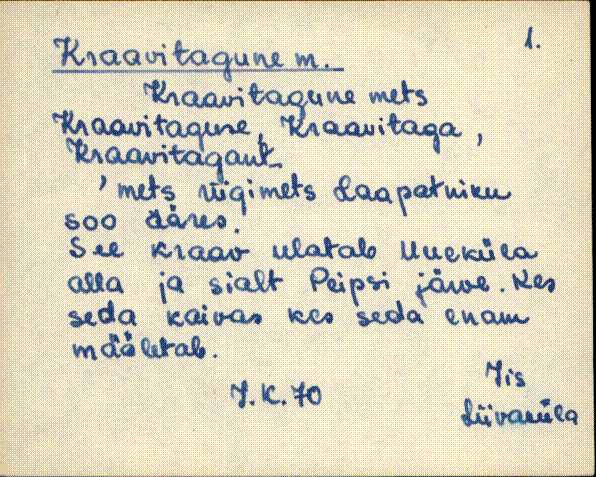 1.
Kraavitagune m.
Kraavitagune mets
Kraavitaguse, Kraavitaga,
Kraavitagant.
'mets riigimets Laapatniku
soo ääres.
See kraav ulatab Uueküla
alla ja sialt Peipsi järve. Kes
seda kaivas kes seda enam
määletab.
J.K.70
Iis
Liivaküla